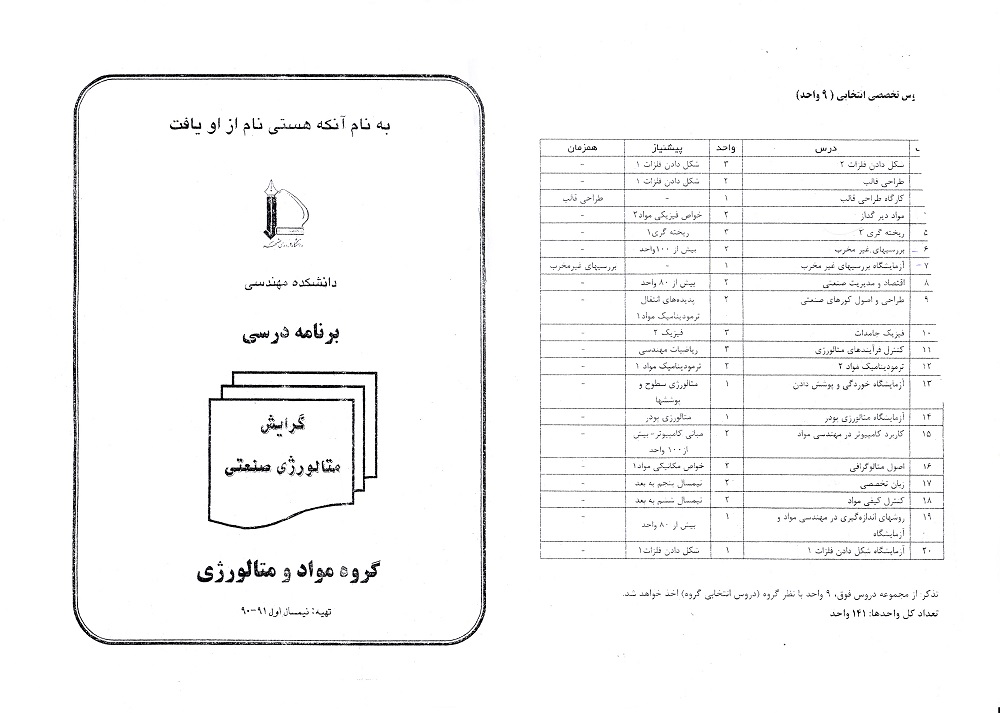 به نام آنکه هستی نام از او یافت
دانشکده مهندسی
برنامه درسی
گرایش
متالورژی صنعتی
گروه مواد و متالورژی
تهیه: نیمسال اول ۹۱-۹۰
وس تخصصی انتخابی (۹ واحد)
درس واحد پیشنیاز همزمان
شکل دادن فلزات ۲ ۳ شکل دادن فلزات ۱ -
طراحی قالب ۲ شکل دادن فلزات ۱ -
کارگاه طراحی قالب ۱ - طراحی قالب
مواد دیر گداز ۲ خواص فیزیکی مواد۲ -
۵ ریخته گری ۲ ۳ ریخته گری۱ -
۶ بررسیهای غیر مخرب ۲ بیش از ۱۰۰واحد -
۷ آزمایشگاه بررسیهای غیر مخرب ۱ - بررسیهای غیرمخرب
۸ اقتصاد و مدیریت صنعتی ۲ بیش از ۸۰ واحد -
۹ طراحی و اصول کورهای صنعتی ۲ پدیده‌های انتقال -
ترمودینامیک مواد۱
۱۰ فیزیک جامدات ۳ فیزیک ۲ -
۱۱ کنترل فرآیندهای متالورژی ۳ ریاضیات مهندسی -
۱۲ ترمودینامیک مواد ۲ ۲ ترمودینامیک مواد ۱ -
۱۳ آزمایشگاه خوردگی و پوشش دادن ۱ متالورژی سطوح و -
پوششها
۱۴ آزمایشگاه متالورژی پودر ۱ متالورژی پودر -
۱۵ کاربرد کامپیوتر در مهندسی مواد ۲ مبانی کامپیوتر-بیش -
از۱۰۰ واحد
۱۶ اصول متالوگرافی ۲ خواص مکانیکی مواد۱ -
۱۷ زبان تخصصی ۲ نیمسال پنجم به بعد -
۱۸ کنترل کیفی مواد ۲ نیمسال ششم به بعد -
۱۹ روشهای اندازه‌گیری در مهندسی مواد و ۱ بیش از ۸۰ واحد -
آزمایشگاه
۲۰ آزمایشگاه شکل دادن فلزات ۱ ۱ شکل دادن فلزات۱ -
تذکر: از مجموعه دروس فوق، ۹ واحد با نظر گروه (دروس انتخابی گروه) اخذ خواهد شد.
تعداد کل واحدها: ۱۴۱ واحد